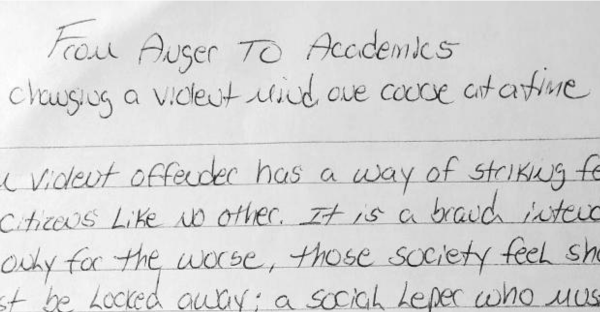 From Anger To Academics
changing a violent mind one course at a time
violent offender has a way of striking fe
citizens like no other. It is a brand inten
only for the worse, those society feel sho
st be locked away; a social leper who mus